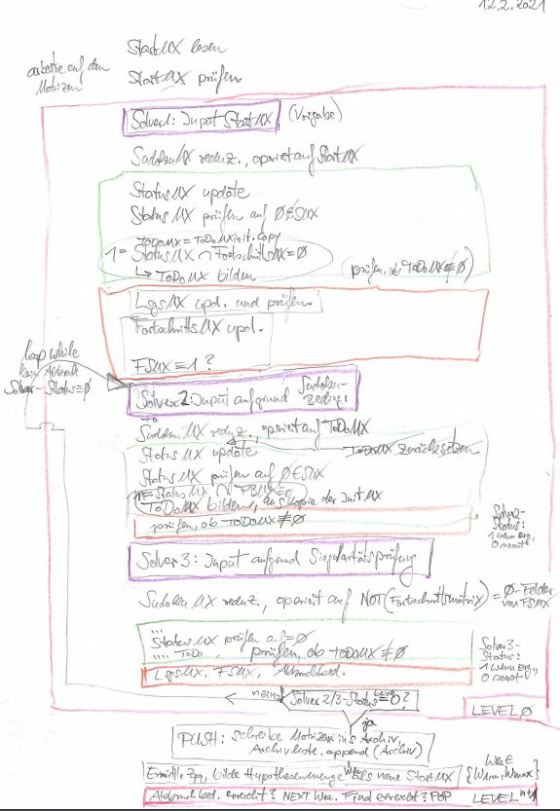 12.2.2021
StartMX lesen
StartMX prüfen
arbeite auf den
Matrizen
Solver1: Input StartMX (Vorgabe)
SudokuMX reduz., operiert auf StartMX
StatusMX update
StatusMX prüfen auf Ø∈SMX
ToDoMX = ToDoMXinit.copy
1 = StatusMX ∩ FortschrittsMX = Ø
↳ ToDoMX bilden
(prüfen, ob ToDoMX ≠ Ø)
LogsMX upd. und prüfen
FortschrittsMX upd.
FSMX ≡ 1 ?
loop while
kein
Solver-Status=Ø
Solver 2: Input aufgrund Sudoku-
SudokuMX reduz., operiert auf ToDoMX
ToDoMX zurücksetzen
Status MX update
Status MX prüfen auf Ø∈SMX
ToDoMX bilden, aus Kopie der Init MX
prüfen, ob ToDoMX ≠ Ø
Solver2-
Status:
1 wenn erg,
0 sonst
Solver 3: Input aufgrund Singularitätsprüfung
Sudoku MX reduz., operiert auf NOT(Fortschrittsmatrix) = Ø-Felder
von FSMX
...
Status MX prüfen auf = Ø
.... ToDo prüfen, ob ToDoMX ≠ Ø
LogsMX, FSMX,
Solver3-
Status:
1 wenn erg,
0 sonst
nein
Solver 2/3-Status = 0 ?
LEVEL Ø
ja
PUSH: schreibe Matrizen ins Archiv,
Archivliste.append(Archiv)
Ermittle Zpg, bilde Hypothesenmenge als neue StartMX
erreicht? NEXT Find erreicht? POP
LEVEL n+1